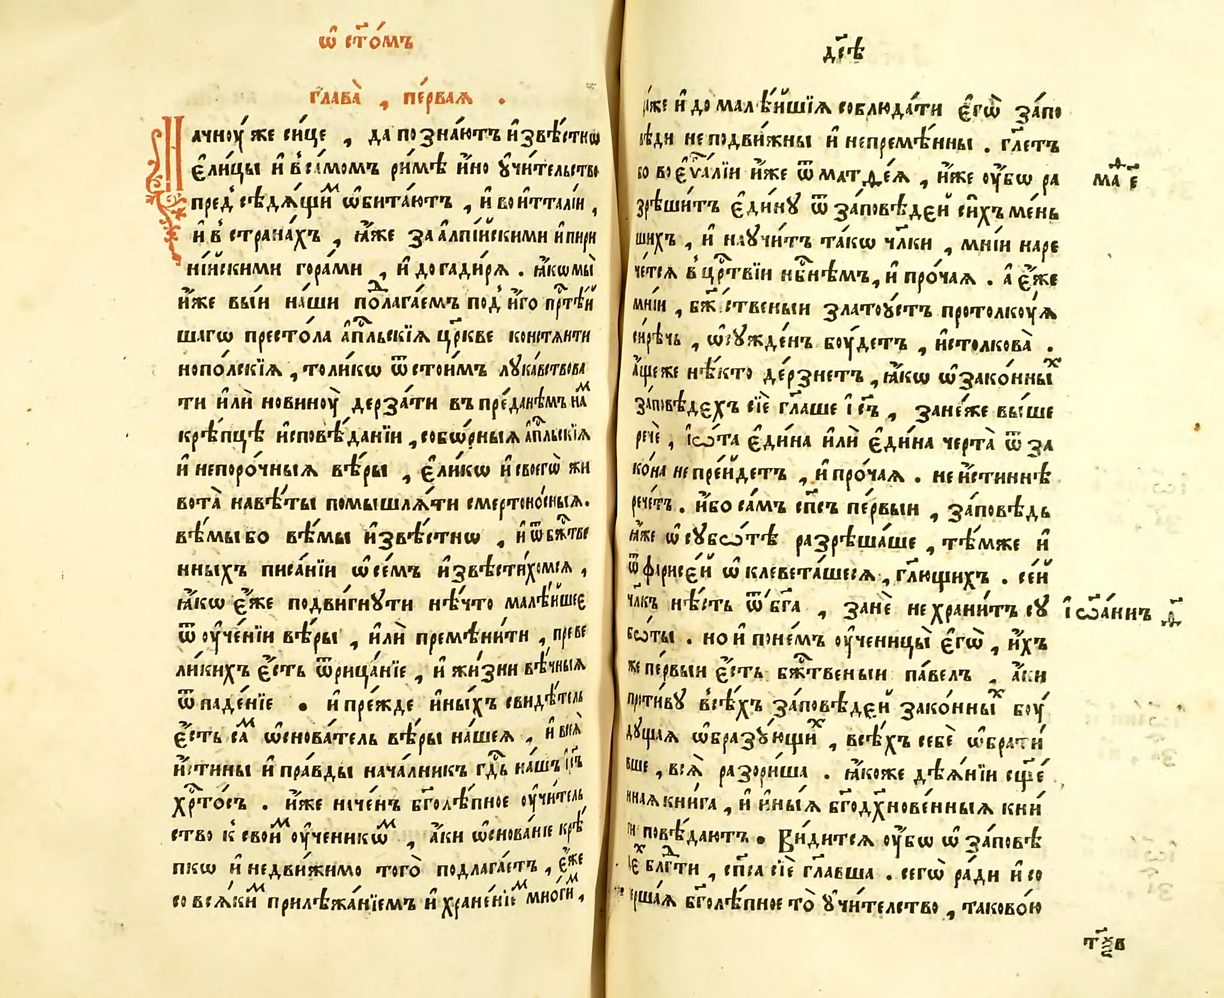 ѿ ст҃омъ
глава̀ , пе́рвая .
Начноу́ же си́це , да познаю́тъ и҆звѣ́стнѡ
є҆ли́цы и҆ в са́момъ ри́мѣ и҆́но ᲂу҆чи́тельство
пред̾сѣдѧ́щиⷨ ѡ҆бита́ютъ , и҆ во и҆тталі́и ,
и҆ в̾ страна́хъ , ꙗ҆́же за а҆лпі́йскими и҆ пири
ні́йскими гора́ми , и҆ до гади́рѧ . ꙗ҆́кѡ мы̀
и҆́же вы́и на́ши пⷣолага́емъ под̾ и҆́го прⷭ҇тѣ́й
шагѡ престо́ла а҆пⷭ҇льскїѧ цр҃кве константи
нопо́лскїѧ , толи́кѡ ѿстои́мъ лꙋка́вствова
ти и҆лѝ новиноу̀ дерза́ти въ пре́даннѣмъ наⷨ
крѣ́пцѣ и҆сповѣ́данїи , собѡ́рныѧ а҆пⷭ҇льскїѧ
и҆ непоро́чныѧ вѣ́ры , є҆ли́кѡ и҆ своегѡ̀ жи
вота̀ навѣ́ты помышлѧ́ти смертоно́сныѧ .
вѣ́мы бо вѣ́мы и҆звѣ́стнѡ , и҆ ѿ бж҃тве
нныхъ писа́нїи ѡ҆ се́мъ и҆звѣсти́хомсѧ ,
ꙗ҆́кѡ є҆́же подви́гнꙋти нѣ́что малѣ́йшеє
ѿ ᲂу҆че́нїи вѣ́ры , и҆лѝ премѣни́ти , преве
ли́кихъ є҆́сть ѿрица́нїе , и҆ жи́зни вѣ́чныѧ
ѿпаде́нїе . и҆ пре́жде и҆́ныхъ свидѣ́тель
є҆́сть саⷨ ѡ҆снова́тель вѣ́ры на́шеѧ , и҆ всеѧ̀
и҆́стины и҆ пра́вды нача́лникъ гдⷭ҇ь на́шъ і҆и҃съ
хрⷭ҇то́съ . и҆́же ниче́нъ бг҃олѣ́пное ᲂу҆чи́тель
ство к̾ свои̑ⷨ ᲂу҆ченикѡ́ⷨ , а҆́ки ѡ҆снова́нїе крѣ́
пкѡ и҆ недви́жимо того̀ подлага́етъ , є҆́же
со всѧ́киⷨ прилѣжа́нїемъ и҆ хране́нїеⷨ мно́гиⷨ ,
дѣ́є
да́же и҆ до малѣ́йшїѧ соблюда́ти є҆гѡ̀ за́по
вѣди неподви́жны и҆ непремѣ́нны . гл҃етъ
бо во є҆ѵⷢ҇а́лїи и҆́же ѿ матѳе́ѧ , и҆́же ᲂу҆́бѡ ра
зрѣши́тъ є҆ди́нꙋ ѿ за́повѣдей си́хъ ме́нь
шихъ , и҆ наꙋчи́тъ та́кѡ чл҃ки , мні́и наре
че́тсѧ в̾ црⷭ҇твїи нбⷭ҇нѣмъ , и҆ про́чаѧ . а҆ є҆́же
мні́и , бжⷭ҇ственыи златоꙋ́стъ протолкоу́ѧ
си́рѣчь , ѡ҆сꙋжде́нъ боу́детъ , и҆столкова̀ .
а҆́ще же нѣ́кто де́рзнетъ , ꙗ҆́кѡ ѡ҆ зако́нныⷯ
за́повѣдехъ сїѐ гл҃аше і҆и҃съ , зане́же вы́ше
речѐ , і҆ѡ́та є҆ди́на и҆лѝ є҆ди́на черта̀ ѿ за
ко́на не пре́йдетъ , и҆ про́чаѧ . не и҆́стиннѣ
рече́тъ . и҆́бо са́мъ сп҃съ пе́рвыи , за́повѣдь
ꙗ҆́же ѡ҆ сꙋбѡ́тѣ разрѣша́ше , тѣ́мже и҆
ѿ фарисе́й ѡ҆клевета́шесѧ , гл҃ющихъ . се́й
чл҃къ нѣ́сть ѿ бг҃а , занѐ не храни́тъ сꙋ
бѡ́ты . но и҆ по не́мъ ᲂу҆ченицы̀ є҆гѡ̀ , и҆́хъ
же пе́рвыи є҆́сть бжⷭ҇твеныи па́велъ , а҆́ки
проти́вꙋ всѣ́хъ за́повѣдей зако́нныⷯ боу́
дꙋщаѧ ѡ҆бразꙋ́ющиⷯ , всѣ́хъ себѐ ѡ҆брати́
вше , всѧ̀ разори́ша . ꙗ҆́коже дѣѧ́нїи сщ҃е́
ннаѧ кни́га , и҆ и҆́ныѧ бг҃одх҃нове́нныѧ кни́
ги повѣ́даютъ . Ви́дитсѧ ᲂу҆́бѡ ѡ҆ за́повѣ
деⷯ блгⷣти , сп҃са сїѐ гл҃авша . сегѡ̀ ра́ди и҆ со
верша́ѧ бг҃олѣ́пное то̀ ᲂу҆чи́телство , таково́ю
ма є҃
і҆ѡа́ннъ ѳ҃
тх҃в